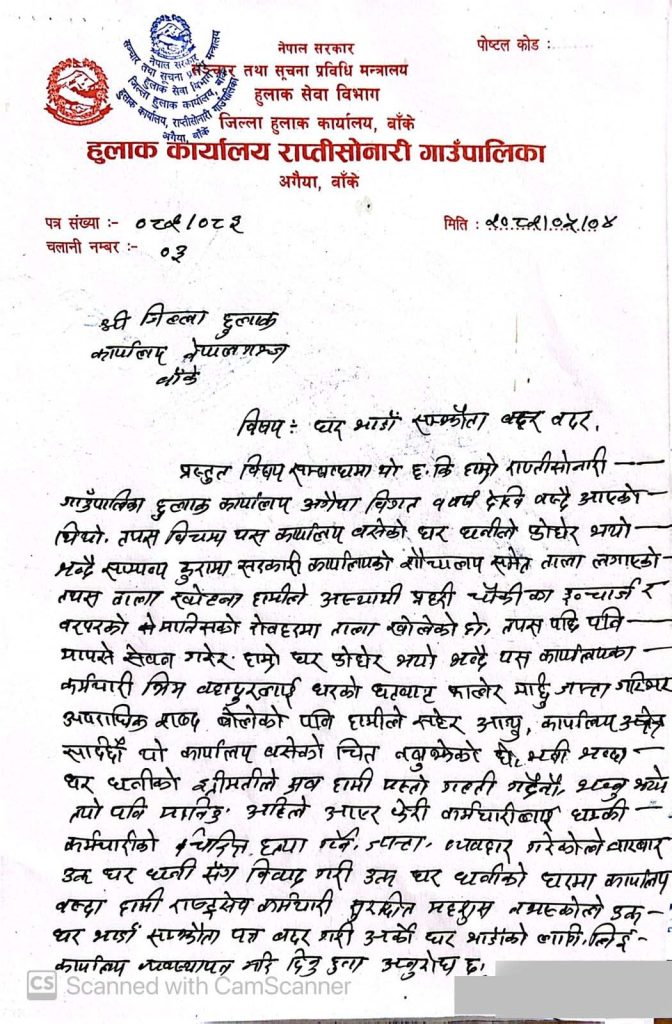 नेपाल सरकार
पोष्टल कोड :
सञ्चार तथा सूचना प्रविधि मन्त्रालय
हुलाक सेवा विभाग
जिल्ला हुलाक कार्यालय, बाँके
हुलाक कार्यालय राप्तीसोनारी गाउँपालिका
अगैया, बाँके
पत्र संख्या :- ०८२/०८३
मिति : २०८२/०५/०४
चलानी नम्बर :- ०३
श्री जिल्ला हुलाक
कार्यालय नेपालगन्ज
बाँके
विषय : घर भाडाँ सम्झौता बदर बदर.
प्रस्तुत विषय सम्बन्धमा यो छ. कि हाम्रो राप्तीसोनारी
गाउँपालिका हुलाक कार्यालय अगैया विगत १ वर्ष देखि बस्दै आएको
थियो. तपस विचमा यस कार्यालय बसेको घर धनीले फोहोर भयो
भन्दै सामान्य कुरामा सरकारी कार्यालयको शौचालय समेत ताला लगाएको
तपस ताला खोल्न हामीले अस्थायी प्रहरी चौकी का इन्चार्ज र
वरपरको मानिसको रोहवरमा ताला खोलेको हो. तपस पछि पनि
मापसे सेवन गरेर. हाम्रो घर फोहोर भयो भन्दै यस कार्यालयका
कर्मचारी भिम बहादुरलाई घरको छतबाट फालेर मार्छु
अपराधिक शब्द बोलेको पनि हामीले सहेर आयु, कार्यालय
यो कार्यालय बसेको चित नबुझेको
घर धनीको श्रीमतीले अब हामी यस्तो गल्ती गर्दैनौ, भन्नु भयो
त्यो पनि अहिले आएर फेरी कर्मचारीलाई धम्की
कर्मचारीको हत्या गर्ने. व्यवहार गरेकोले बारबार
उक्त घर धनी संग विवाद गरी उक्त घर धनीको घरमा कार्यालय
बस्दा हामी राष्ट्रसेवक कर्मचारी सुरक्षित महशुस नभएकोले उक्त
घर भाडाँ सम्झौता पत्र बदर गरी अर्को घर भाडाँको लागि लिई
कार्यालय व्यवस्थापन गरि दिनु हुन अनुरोध छ.
CS Scanned with CamScanner